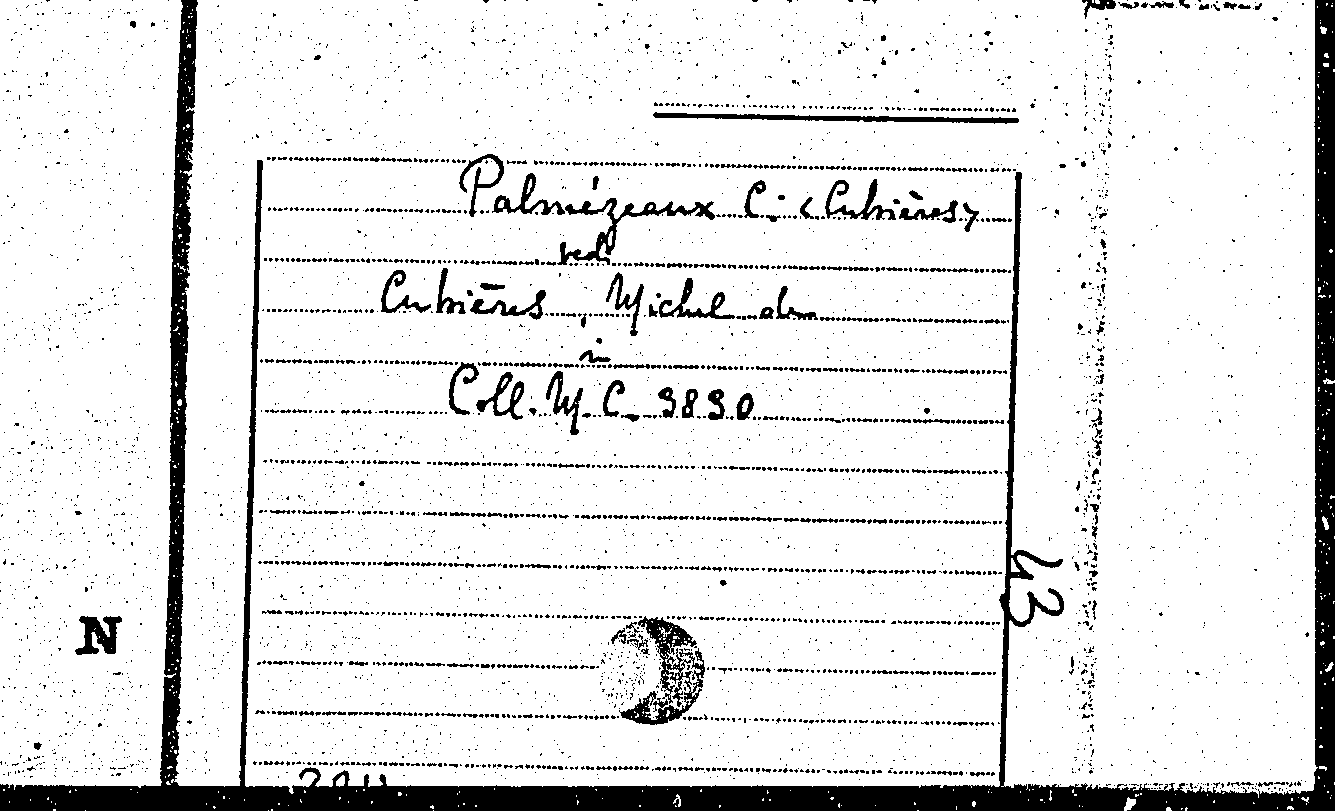 Palmézeaux C: <Cubières>
vedi
Cubières, Michel de
in
Coll. M. C. 9890
43
N